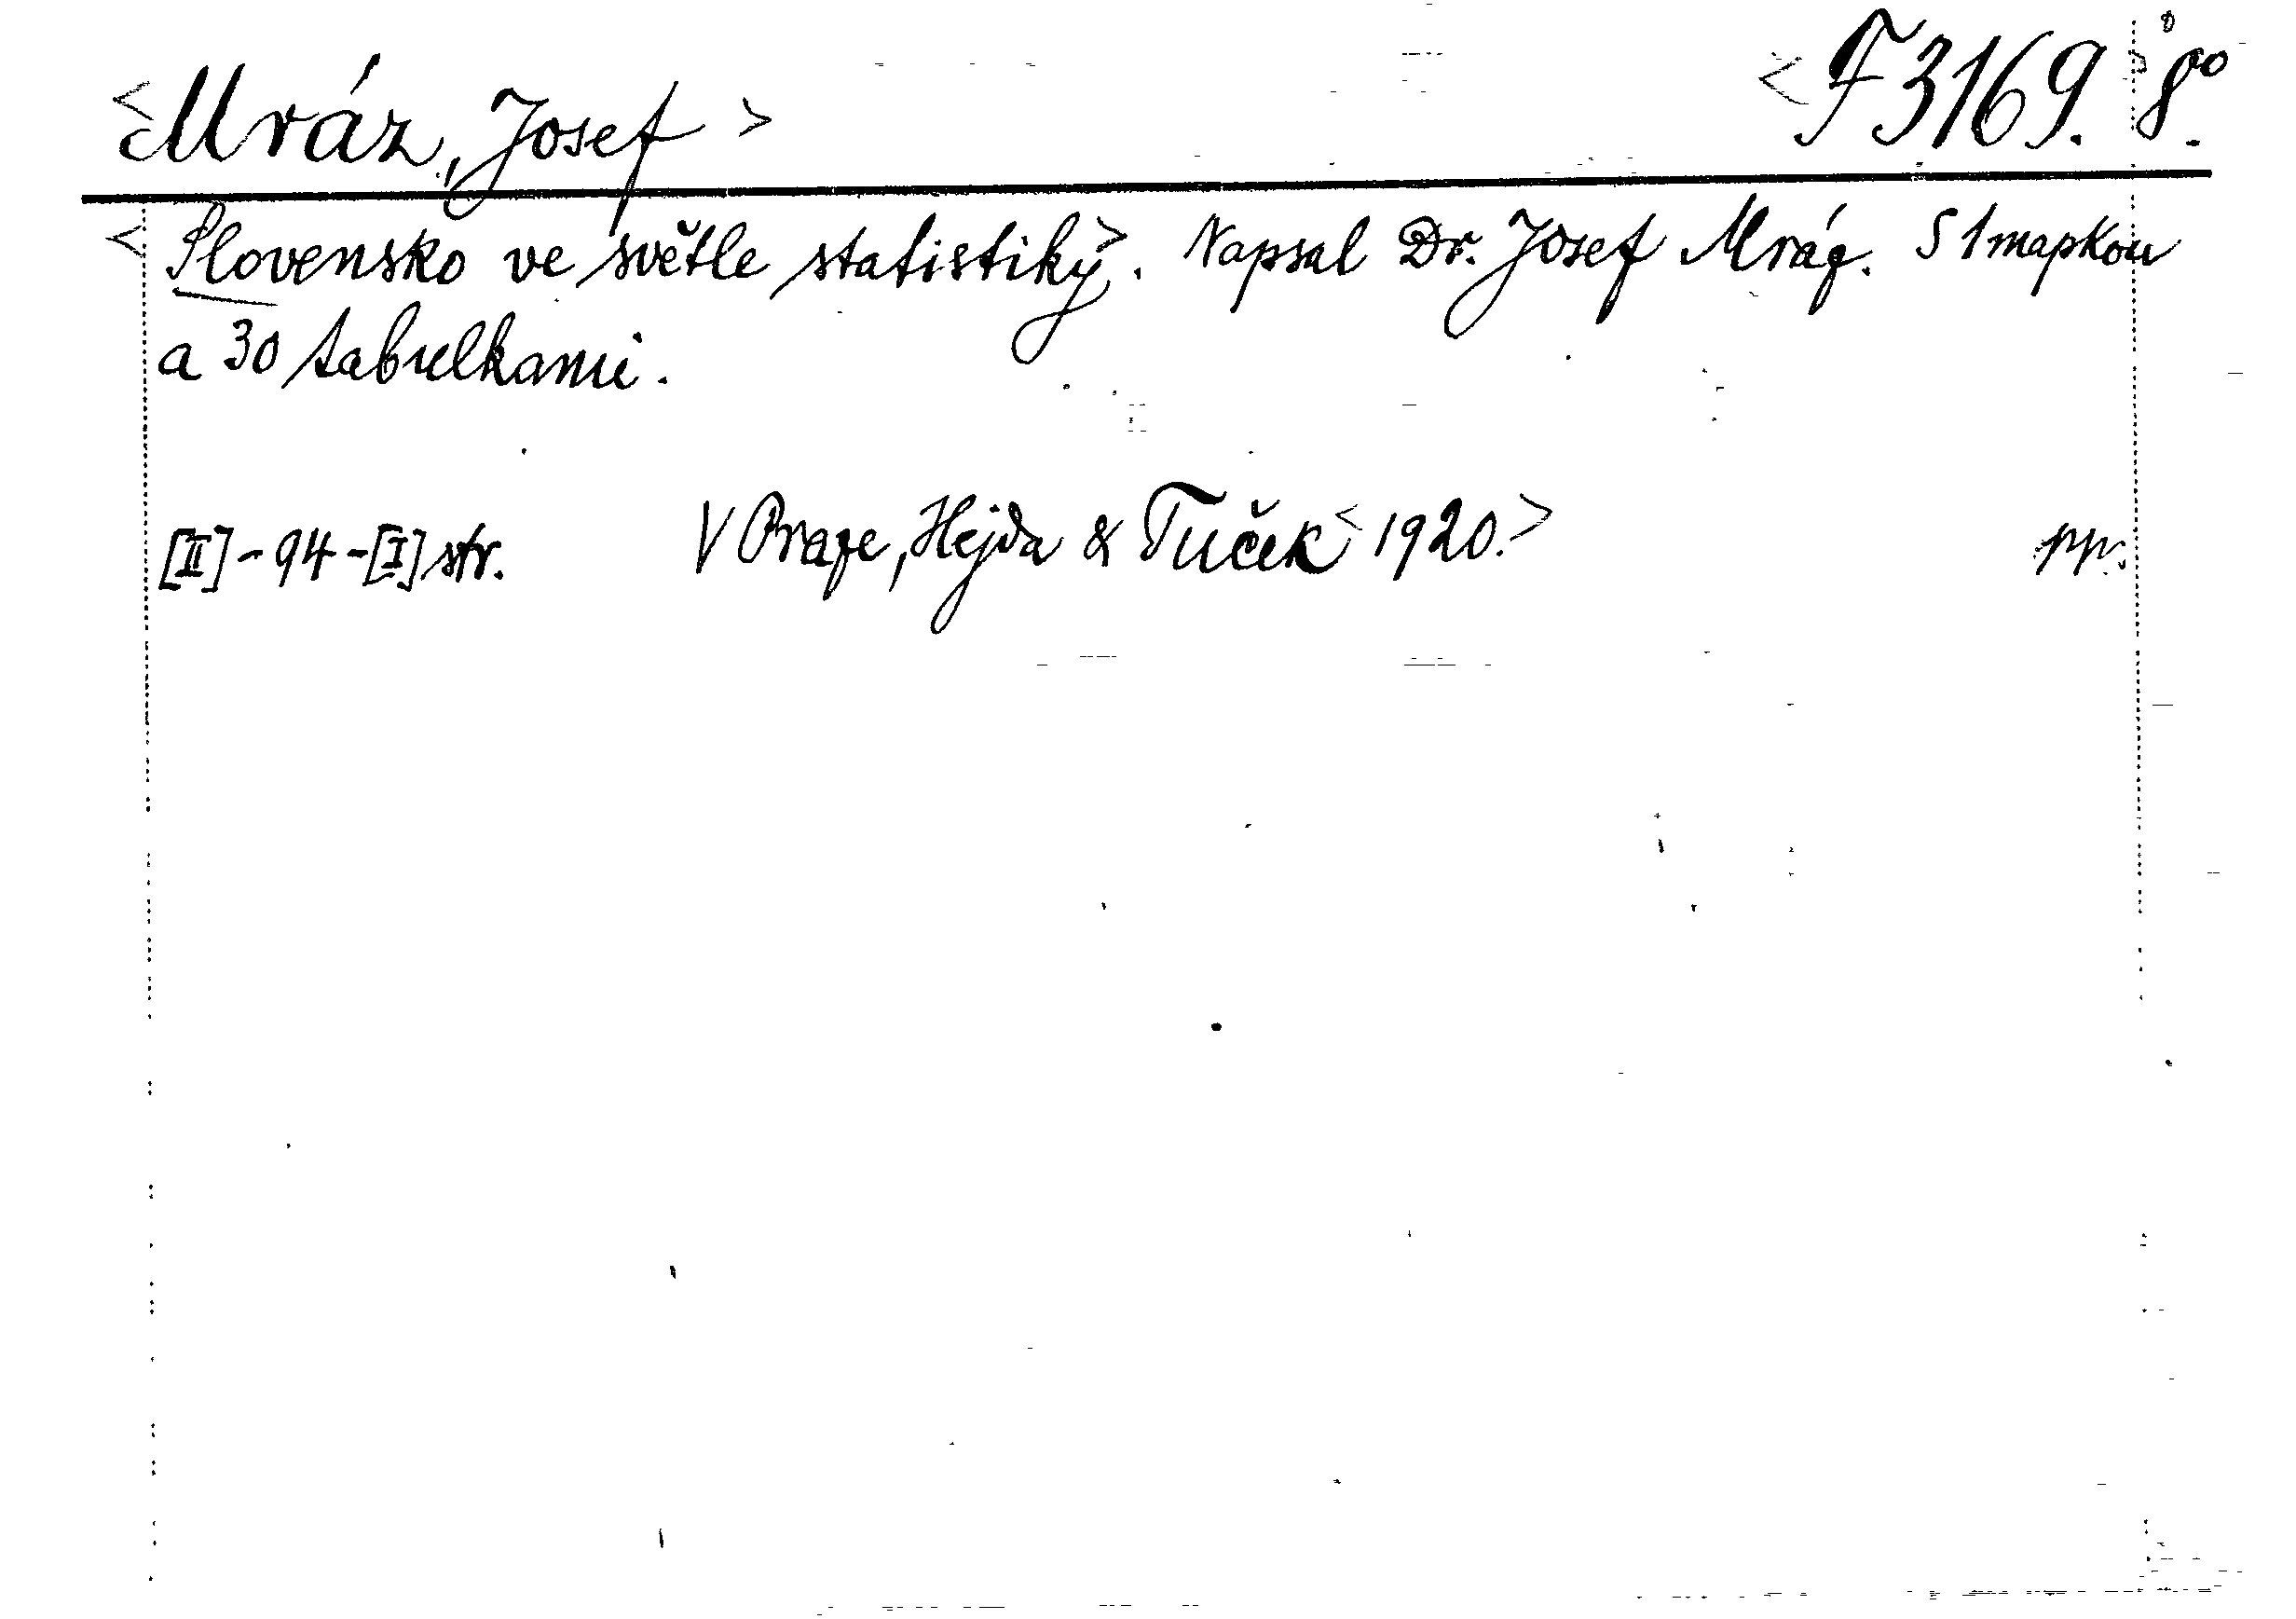 <Mráz, Josef> <F 3169. 8º.
<Slovensko ve světle statistiky>. Napsal Dr. Josef Mráz. S 1 mapkou
a 30 tabulkami.
[II]-94-[I] str. V Praze, Hejda & Tuček <1920.> pp.